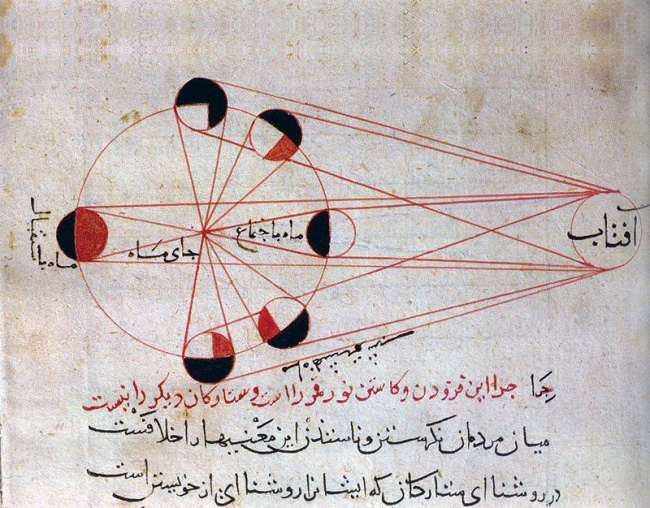 افتاب
ماه باجتماع
جای ماه
ماه باستقبال
چرا چرا این فزودن وکاستن نور قمر را است وستارکان دیکر را نیست
میان مردمان نکرستن این معنیها را خلافست
در روشنا ای ستارکان که ایشانرا روشنا ای از خویشتن است